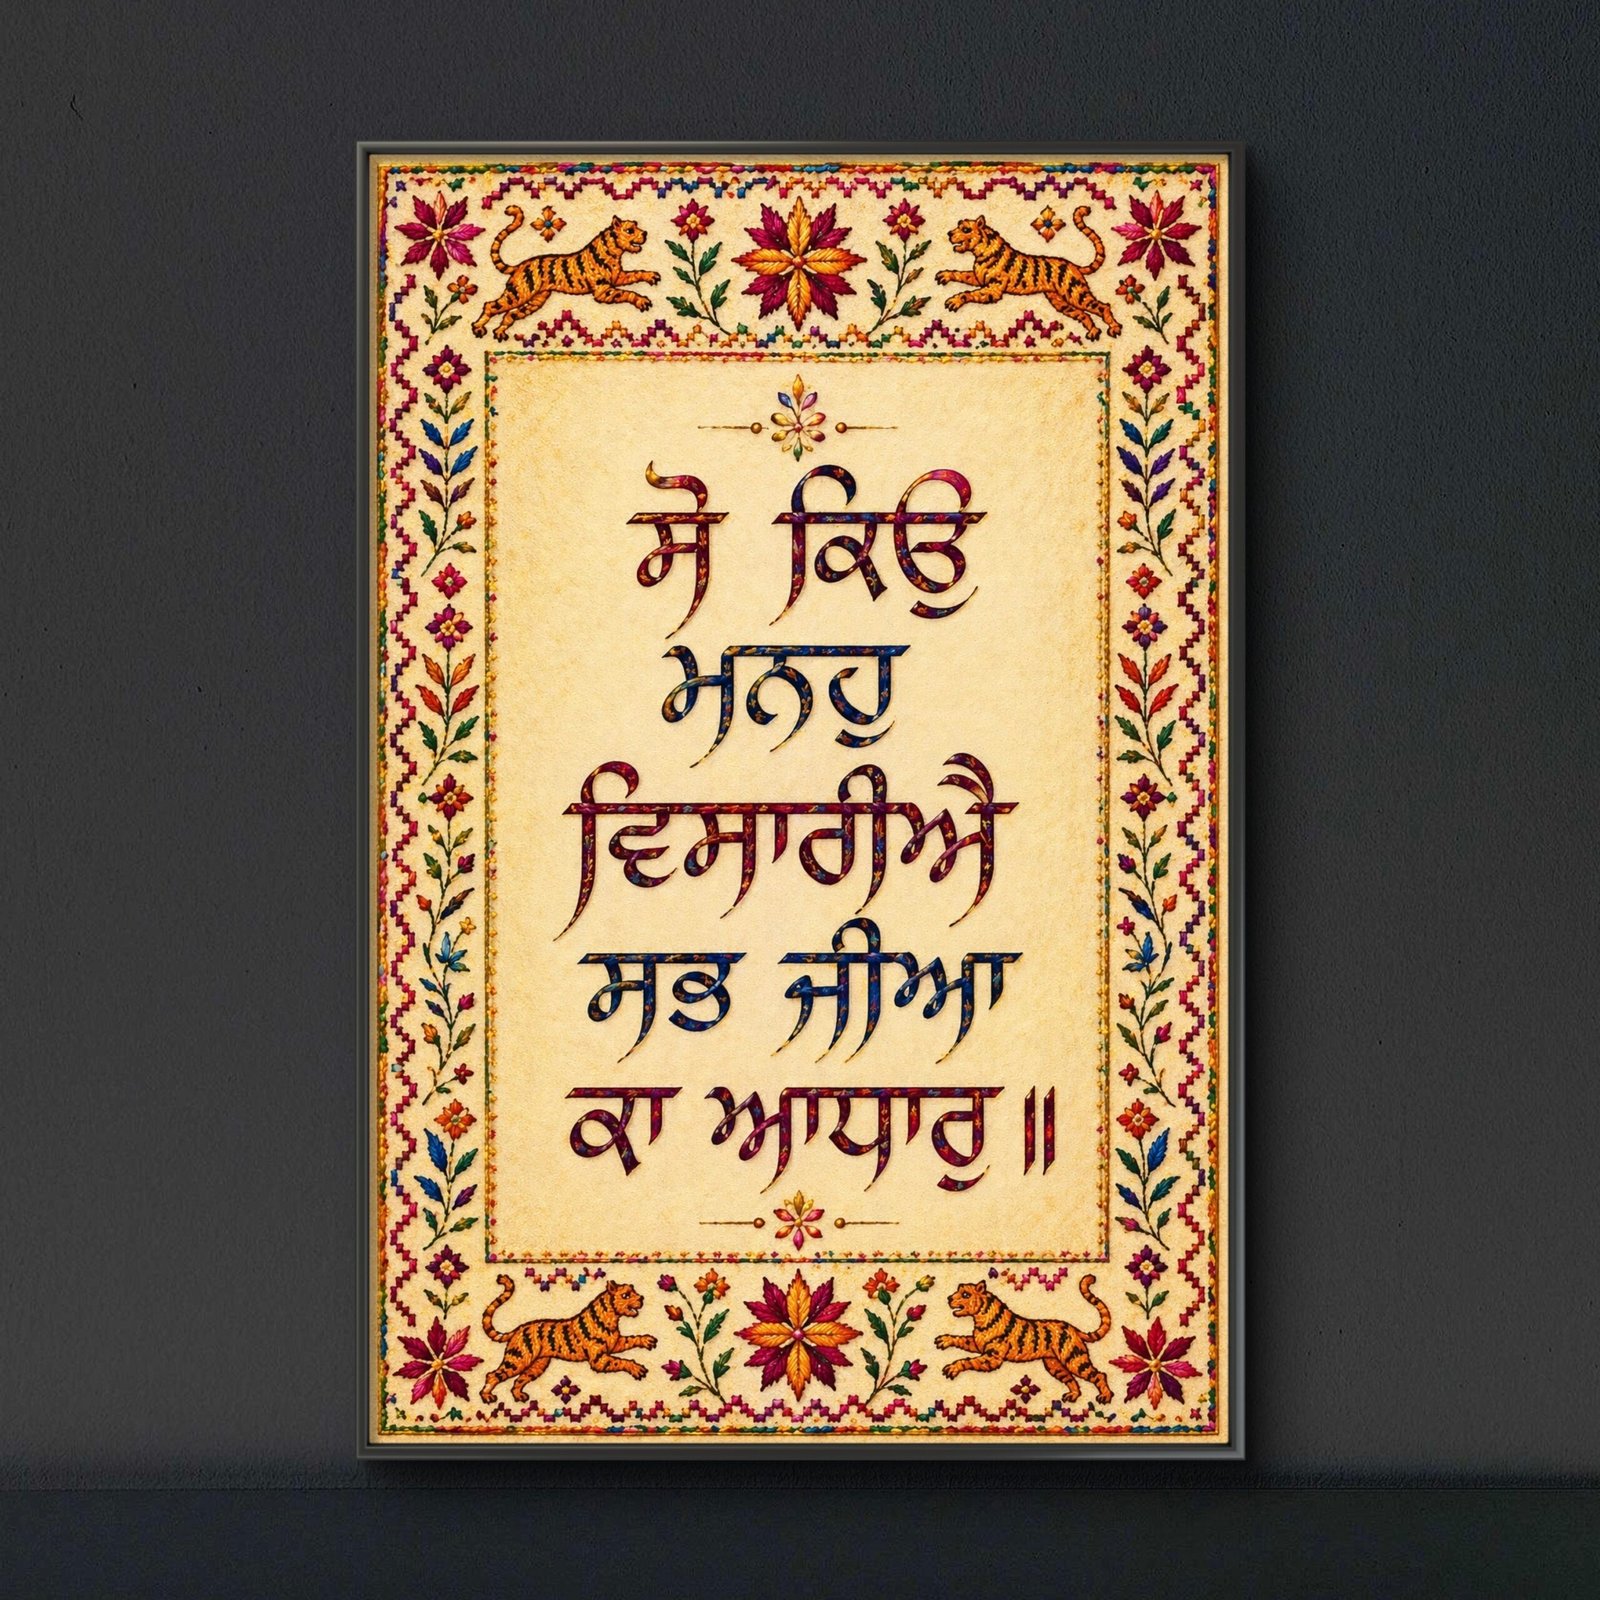 ਸੋ ਕਿਉ
ਮਨਹੁ
ਵਿਸਾਰੀਐ
ਸਭ ਜੀਆ
ਕਾ ਆਧਾਰੁ॥